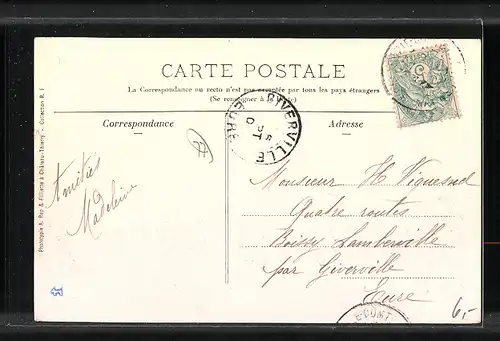 CARTE POSTALE
La Correspondance au recto n'est pas acceptée par tous les pays étrangers
(Se renseigner à la Poste)
Correspondance
Adresse
GIVERVILLE
EURE
Amitiés
Madeleine
Monsieur H Viquesnel
Quatre routes
Boissy Lamberville
par Giverville
Eure
6,-
Phototypie A. Rep & Filliette à Château-Thierry - Collection R. F.